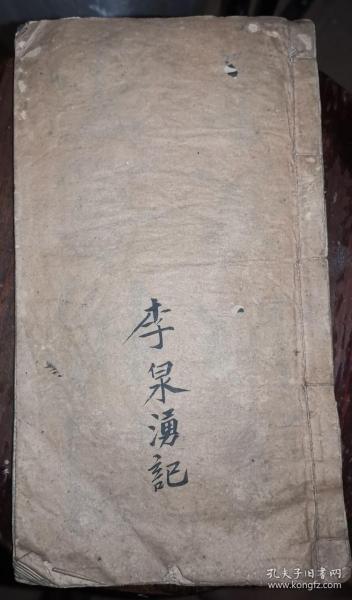 李泉湧記
孔夫子旧书网
www.kongfz.com